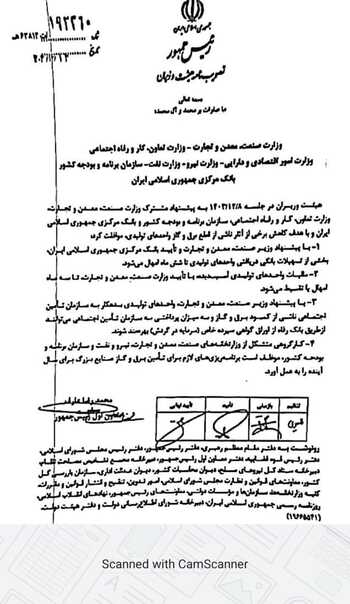 ۱۹۲۲۶۰
جمهوری اسلامی ایران
رئیس جمهور
تصویب نامه هیئت وزیران
بسمه تعالی
با صلوات بر محمد و آل محمد
وزارت صنعت، معدن و تجارت - وزارت تعاون، کار و رفاه اجتماعی
وزارت امور اقتصادی و دارایی - وزارت نیرو - وزارت نفت - سازمان برنامه و بودجه کشور
بانک مرکزی جمهوری اسلامی ایران
هیئت وزیران در جلسه ۱۴۰۳/۱۲/۸ به پیشنهاد مشترک وزارت صنعت، معدن و تجارت،
وزارت تعاون، کار و رفاه اجتماعی، سازمان برنامه و بودجه کشور و بانک مرکزی جمهوری اسلامی
ایران و با هدف کاهش برخی از آثار ناشی از قطع برق و گاز واحدهای تولیدی، موافقت کرد:
۱- با پیشنهاد وزیر صنعت، معدن و تجارت و تأیید بانک مرکزی جمهوری اسلامی ایران،
بخشی از تسهیلات بانکی دریافتی واحدهای تولیدی تا شش ماه امهال می‌شود.
۲- مالیات واحدهای تولیدی آسیب‌دیده، با تأیید وزارت صنعت، معدن و تجارت، تا سه ماه
امهال یا تقسیط می‌شود.
۳- با پیشنهاد وزیر صنعت، معدن و تجارت، واحدهای تولیدی بدهکار به سازمان تأمین
اجتماعی ناشی از کمبود برق و گاز و به میزان پرداختی به سازمان تأمین اجتماعی می‌توانند
ازطریق بانک رفاه از اوراق گواهی سپرده خاص (سرمایه در گردش) بهره‌مند شوند.
۴- کارگروهی متشکل از وزارتخانه‌های صنعت، معدن و تجارت، نیرو و نفت و سازمان برنامه و
بودجه کشور، موظف است برنامه‌ریزی‌های لازم برای تأمین برق و گاز صنایع بزرگ برای سال
آینده را به عمل آورد.
محمدرضا عارف
معاون اول رئیس جمهور
تنظیم بازبینی تأیید تأیید نهایی
رونوشت به دفتر مقام معظم رهبری، دفتر رئیس جمهور، دفتر رئیس مجلس شورای اسلامی،
دفتر رئیس قوه قضاییه، دفتر معاون اول رئیس جمهور، دبیرخانه مجمع تشخیص مصلحت نظام،
دبیرخانه ستاد کل نیروهای مسلح، دیوان محاسبات کشور، دیوان عدالت اداری، سازمان بازرسی کل
کشور، معاونت‌های قوانین و نظارت مجلس شورای اسلامی، امور تدوین، تنقیح و انتشار قوانین و مقررات،
کلیه وزارتخانه‌ها، سازمان‌ها و مؤسسات دولتی، معاونت‌های رئیس جمهور، نهادهای انقلاب اسلامی،
روزنامه رسمی جمهوری اسلامی ایران، دبیرخانه شورای اطلاع‌رسانی دولت و دفتر هیئت دولت.
Scanned with CamScanner